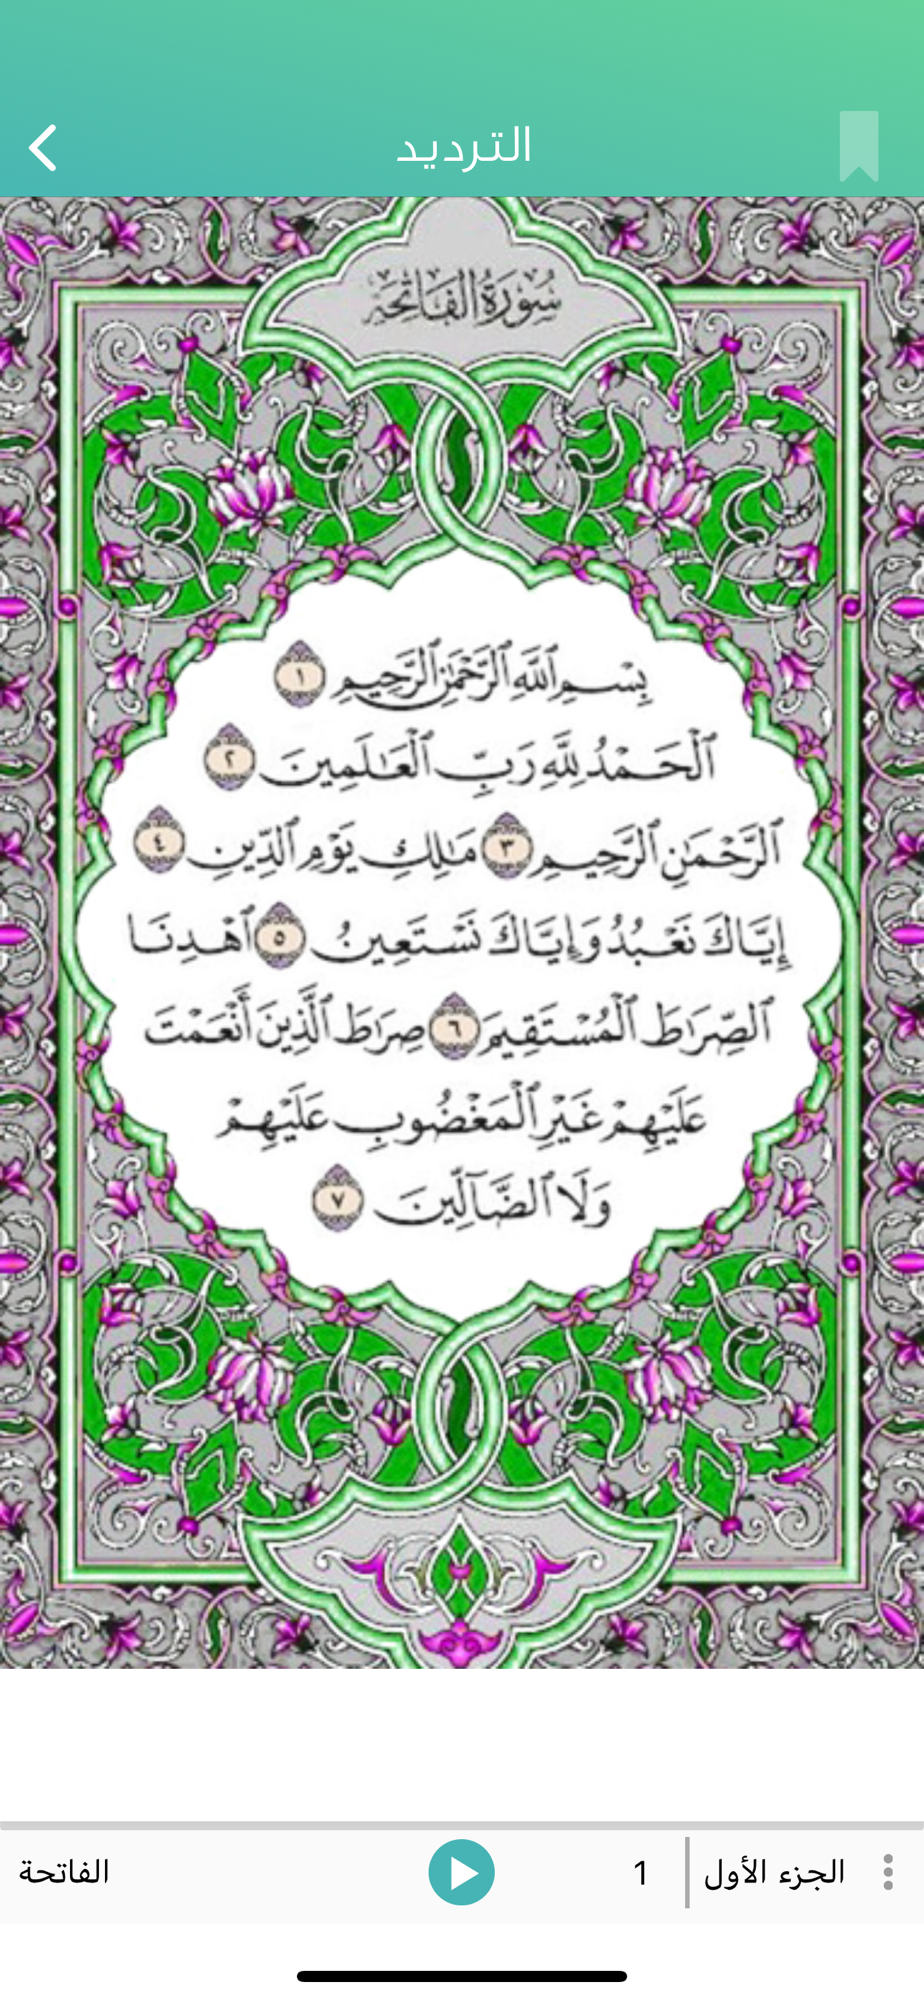 الترديد
سُورَةُ الفَاتِحَة
بِسْمِ ٱللَّهِ ٱلرَّحْمَٰنِ ٱلرَّحِيمِ ١
ٱلْحَمْدُ لِلَّهِ رَبِّ ٱلْعَٰلَمِينَ ٢
ٱلرَّحْمَٰنِ ٱلرَّحِيمِ ٣ مَٰلِكِ يَوْمِ ٱلدِّينِ ٤
إِيَّاكَ نَعْبُدُ وَإِيَّاكَ نَسْتَعِينُ ٥ ٱهْدِنَا
ٱلصِّرَٰطَ ٱلْمُسْتَقِيمَ ٦ صِرَٰطَ ٱلَّذِينَ أَنْعَمْتَ
عَلَيْهِمْ غَيْرِ ٱلْمَغْضُوبِ عَلَيْهِمْ
وَلَا ٱلضَّآلِّينَ ٧
الجزء الأول 1 الفاتحة